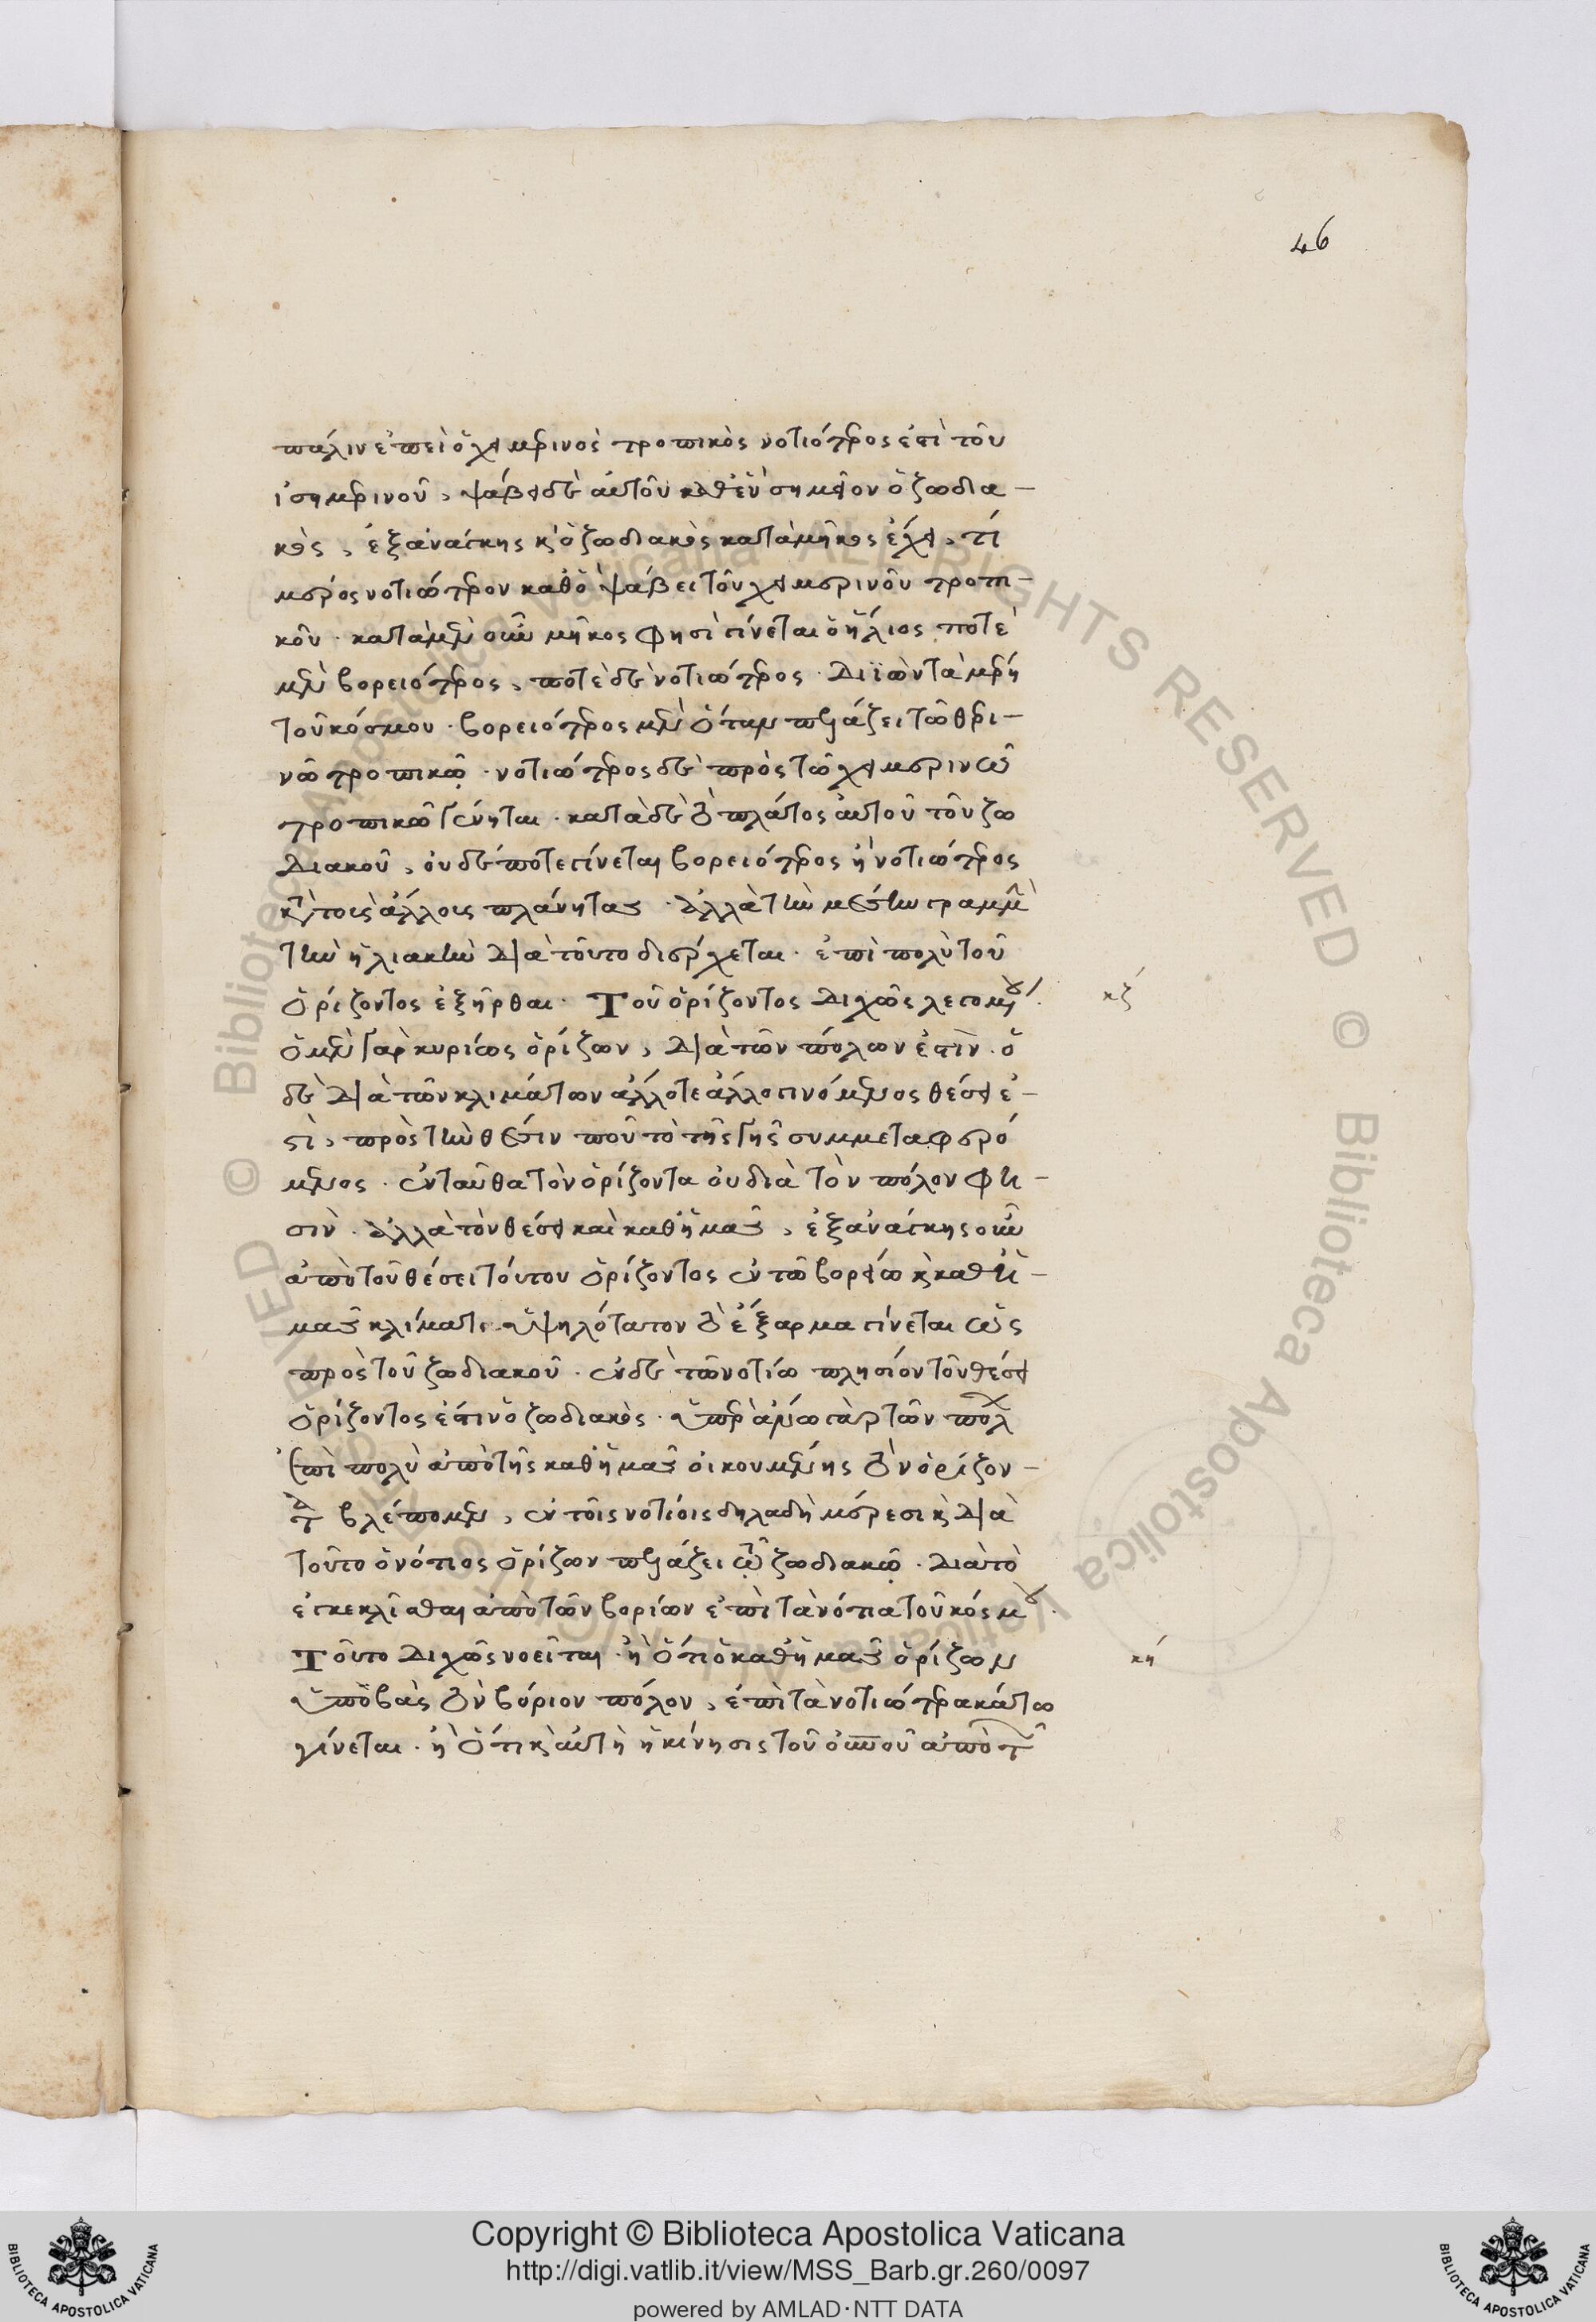 46
πάλιν ἐπεὶ ὁ χειμερινὸς τροπικὸς νοτιότερος ἐστὶ τοῦ
ἰσημερινοῦ, ψαύει δὲ αὐτοῦ καθ' ἓν σημεῖον ὁ ζωδια-
κὸς, ἐξ ἀνάγκης καὶ ὁ ζωδιακὸς κατὰ μῆκος ἔχει, τί
μέρος νοτιώτερον καθὸ ψαύει τοῦ χειμερινοῦ τροπι-
κοῦ. κατὰ μὲν οὖν μῆκος φησὶ γίνεται ὁ ἥλιος ποτὲ
μὲν βορειότερος, ποτὲ δὲ νοτιώτερος. διϊὼν τὰ μέρη
τοῦ κόσμου. βορειότερος μὲν ὅταν πλησιάζει τῶ θερι-
νῶ τροπικῷ. νοτιώτερος δὲ πρὸς τῶ χειμερινῶ
τροπικῶ γένηται. κατὰ δὲ τὸ πλάτος αὐτοῦ τοῦ ζω
διακοῦ, οὐδέποτε γίνεται βορειότερος ἢ νοτιώτερος
τοῖς ἄλλοις πλάνητας. ἀλλὰ τὴν μέσην γραμμὴν
τὴν ἡλιακὴν διὰ τοῦτο διέρχεται. ἐπὶ πολὺ τοῦ
ὁρίζοντος ἐξῆρθαι. Τοῦ ὁρίζοντος διχῶς λεγομένου. κζ
ὁ μὲν γὰρ κυρίως ὁρίζων, διὰ τῶν πόλων ἐστὶν. ὁ
δὲ διὰ τῶν κλιμάτων ἄλλοτε ἄλλο γινόμενος θέσει ἐ-
στὶ, πρὸς τὴν θέσιν που τὸ τῆς γῆς συμμεταφερό
μενος. ἐνταῦθα τὸν ὁρίζοντα οὐ διὰ τὸν πόλον φη-
σὶν. ἀλλὰ τὸν θέσει καὶ καθ' ἡμᾶς, ἐξ ἀνάγκης οὖν
ἀπὸ τοῦ θέσει τούτου ὁρίζοντος ἐν τῶ βορείω καὶ καθ' ἡ-
μᾶς κλίματι ὑψηλότατον τὸ ἔξαρμα γίνεται ὡς
πρὸς τοῦ ζωδιακοῦ. ἐν δὲ τῶ νοτίω πλησίον τοῦ θέσει
ὁρίζοντος ἐστιν ὁ ζωδιακὸς.
ἐπὶ πολὺ ἀπὸ τῆς καθ' ἡμᾶς οἰκουμένης τὸν ὁρίζον-
τα βλέπομεν, ἐν τοῖς νοτίοις δηλαδὴ μέρεσι καὶ διὰ
τοῦτο ὁ νότιος ὁρίζων πλησιάζει τῷ ζωδιακῷ. διὰ τὸ
ἐγκεκλῖσθαι ἀπὸ τῶν βορίων ἐπὶ τὰ νότια τοῦ κόσμου.
Τοῦτο διχῶς νοεῖται. ἢ ὅτι ὁ καθ' ἡμᾶς ὁρίζων κη
ὑποβὰς τὸν βόριον πόλον, ἐπὶ τὰ νοτιώτερα κάτω
γίνεται. ἢ ὅτι καὶ αὐτὴ ἡ κίνησις τοῦ οὐνοῦ ἀπὸ τῶν
Copyright © Biblioteca Apostolica Vaticana
http://digi.vatlib.it/view/MSS_Barb.gr.260/0097
powered by AMLAD·NTT DATA